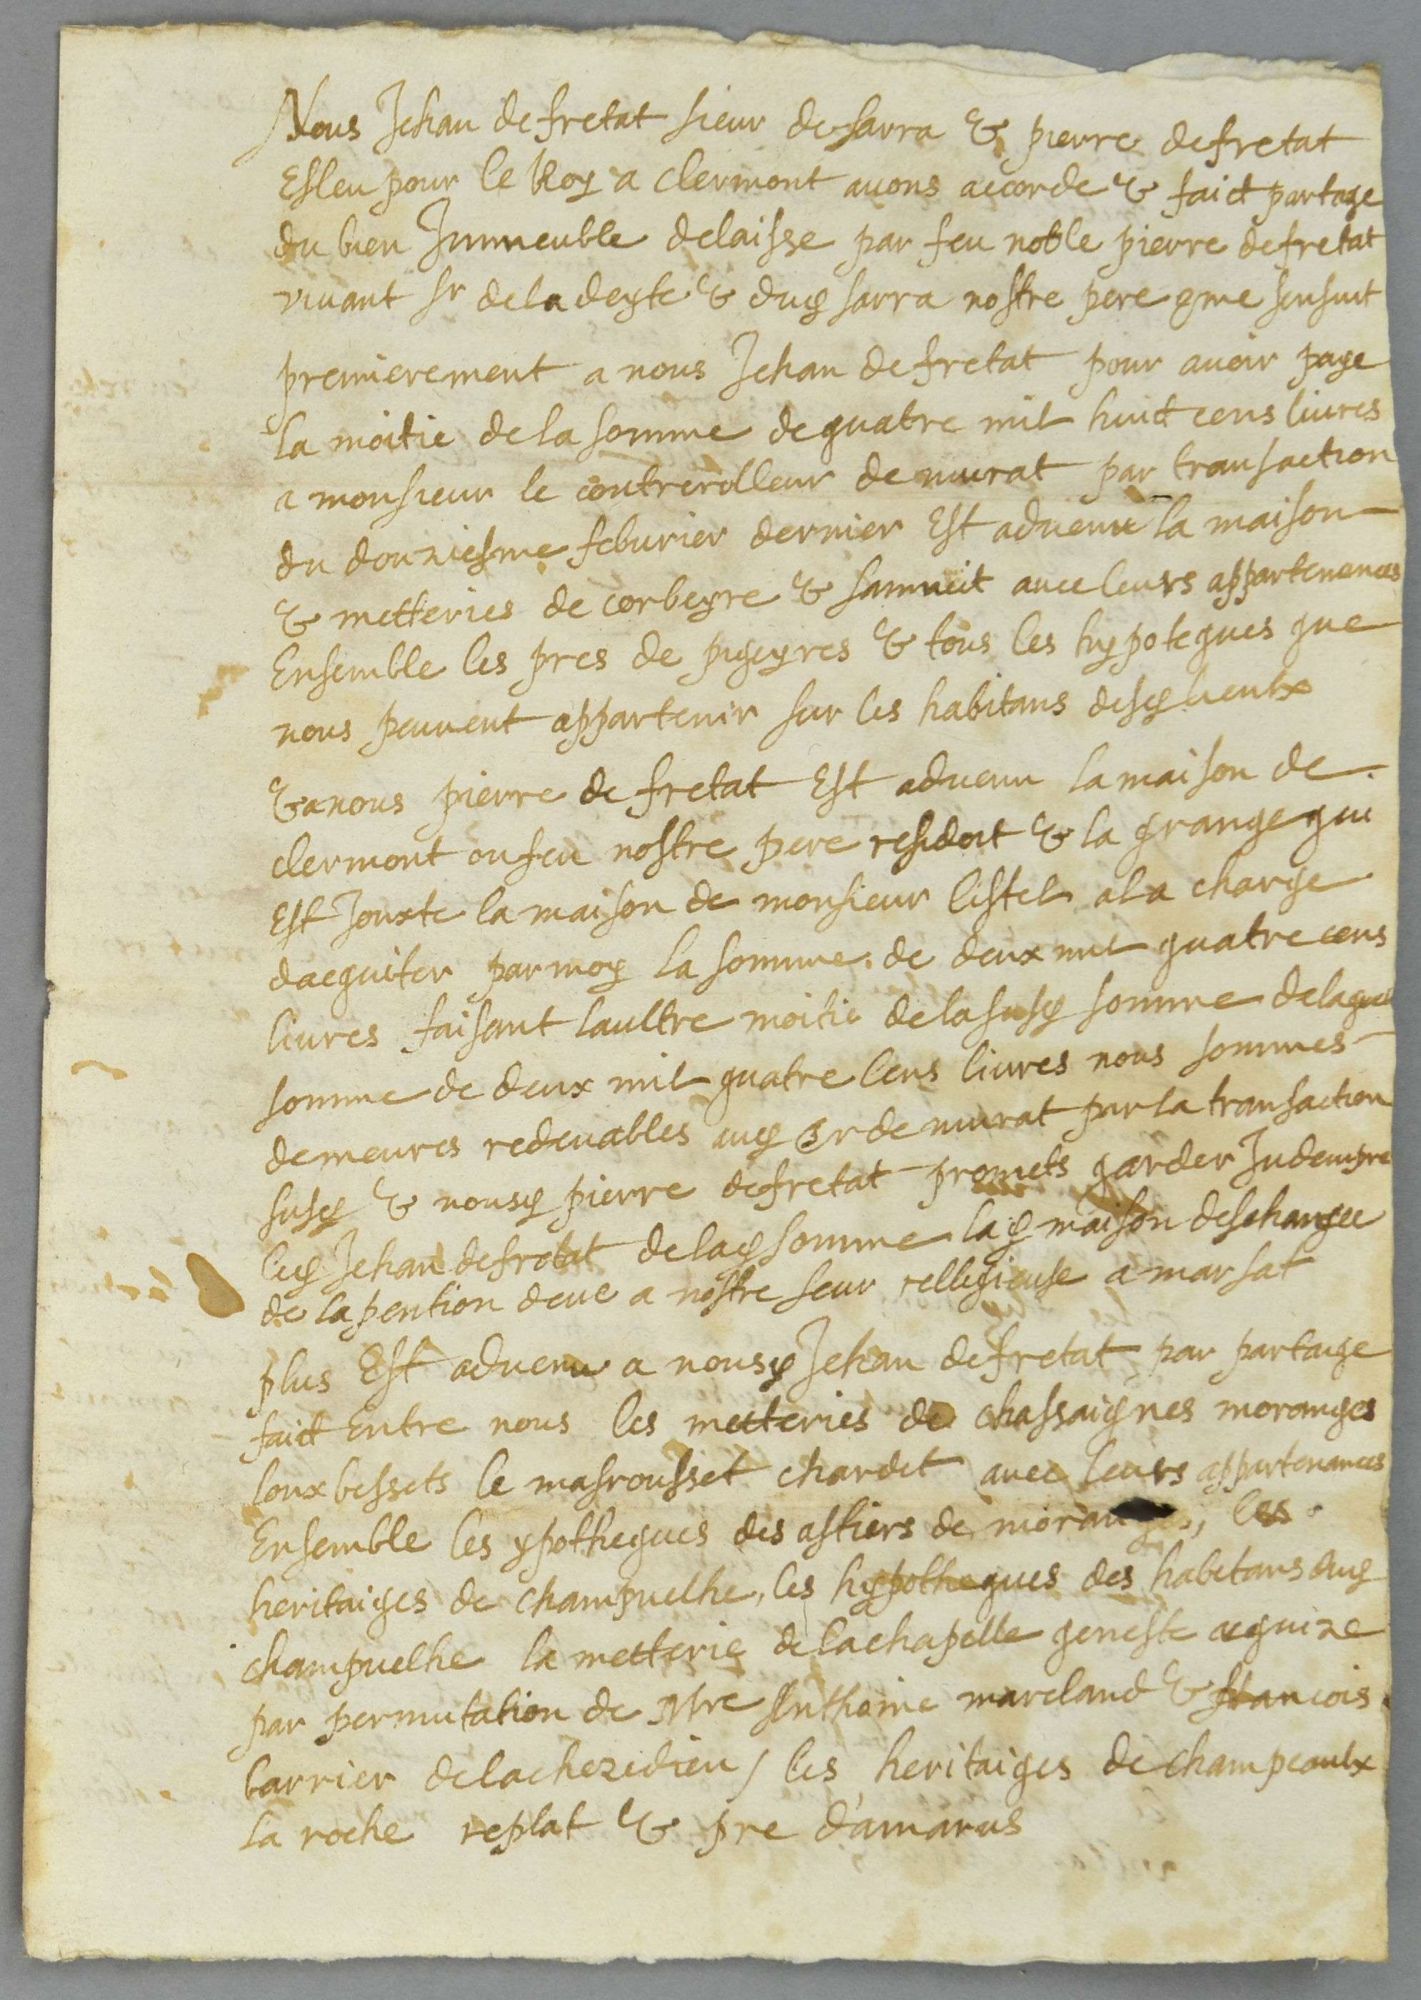 Nous Jehan de fretat sieur de sarra & pierre de fretat
Esleu pour le Roy a clermont avons accorde & faict partage
du bien Immeuble delaisse par feu noble pierre de fretat
vivant sr de la deyte & dug sarra nostre pere gme sensuit
premierement a nous Jehan de fretat pour avoir paye
la moitie de la somme de quatre mil huict cens livres
a monsieur le contrerolleur de murat par transaction
du douziesme febvrier dernier Est advenu la maison
& metteries de corbeyre & avec leurs appartenances
Ensemble les pres de pigeyres & tous les hypoteques que
nous peuvent appartenir sur les habitans desq lieulx
& a nous pierre de fretat Est advenu la maison de
clermont ou feu nostre pere residoit & la grange qui
Est Jouxte la maison de monsieur listel a la charge
dacquiter par moy la somme de deux mil quatre cens
livres faisant laultre moitie de la susq somme de laquel
somme de deux mil quatre cens livres nous sommes
demeures redevables auq sr de murat par la transaction
susq & nousq pierre de fretat promets garder Indempne
leq Jehan de fretat de laq somme laq maison deschargee
de la pention deue a nostre seur relligieuse a marsat
plus Est advenu a nousq Jehan de fretat par partaige
faict Entre nous les metteries de chassaignes moranges
loux bessets le masrousset chardet avec leurs appartenances
Ensemble les ypotheques des astiers de moranges, les
heritaiges de champuelhe, les hypotheques des habitans duq
champuelhe la metterie de la chapelle geneste acquize
par permutation de Mre Anthoine marcland & francois
barrier de la chezedieu / les heritaiges de champeaulx
la roche replat & pre damarus